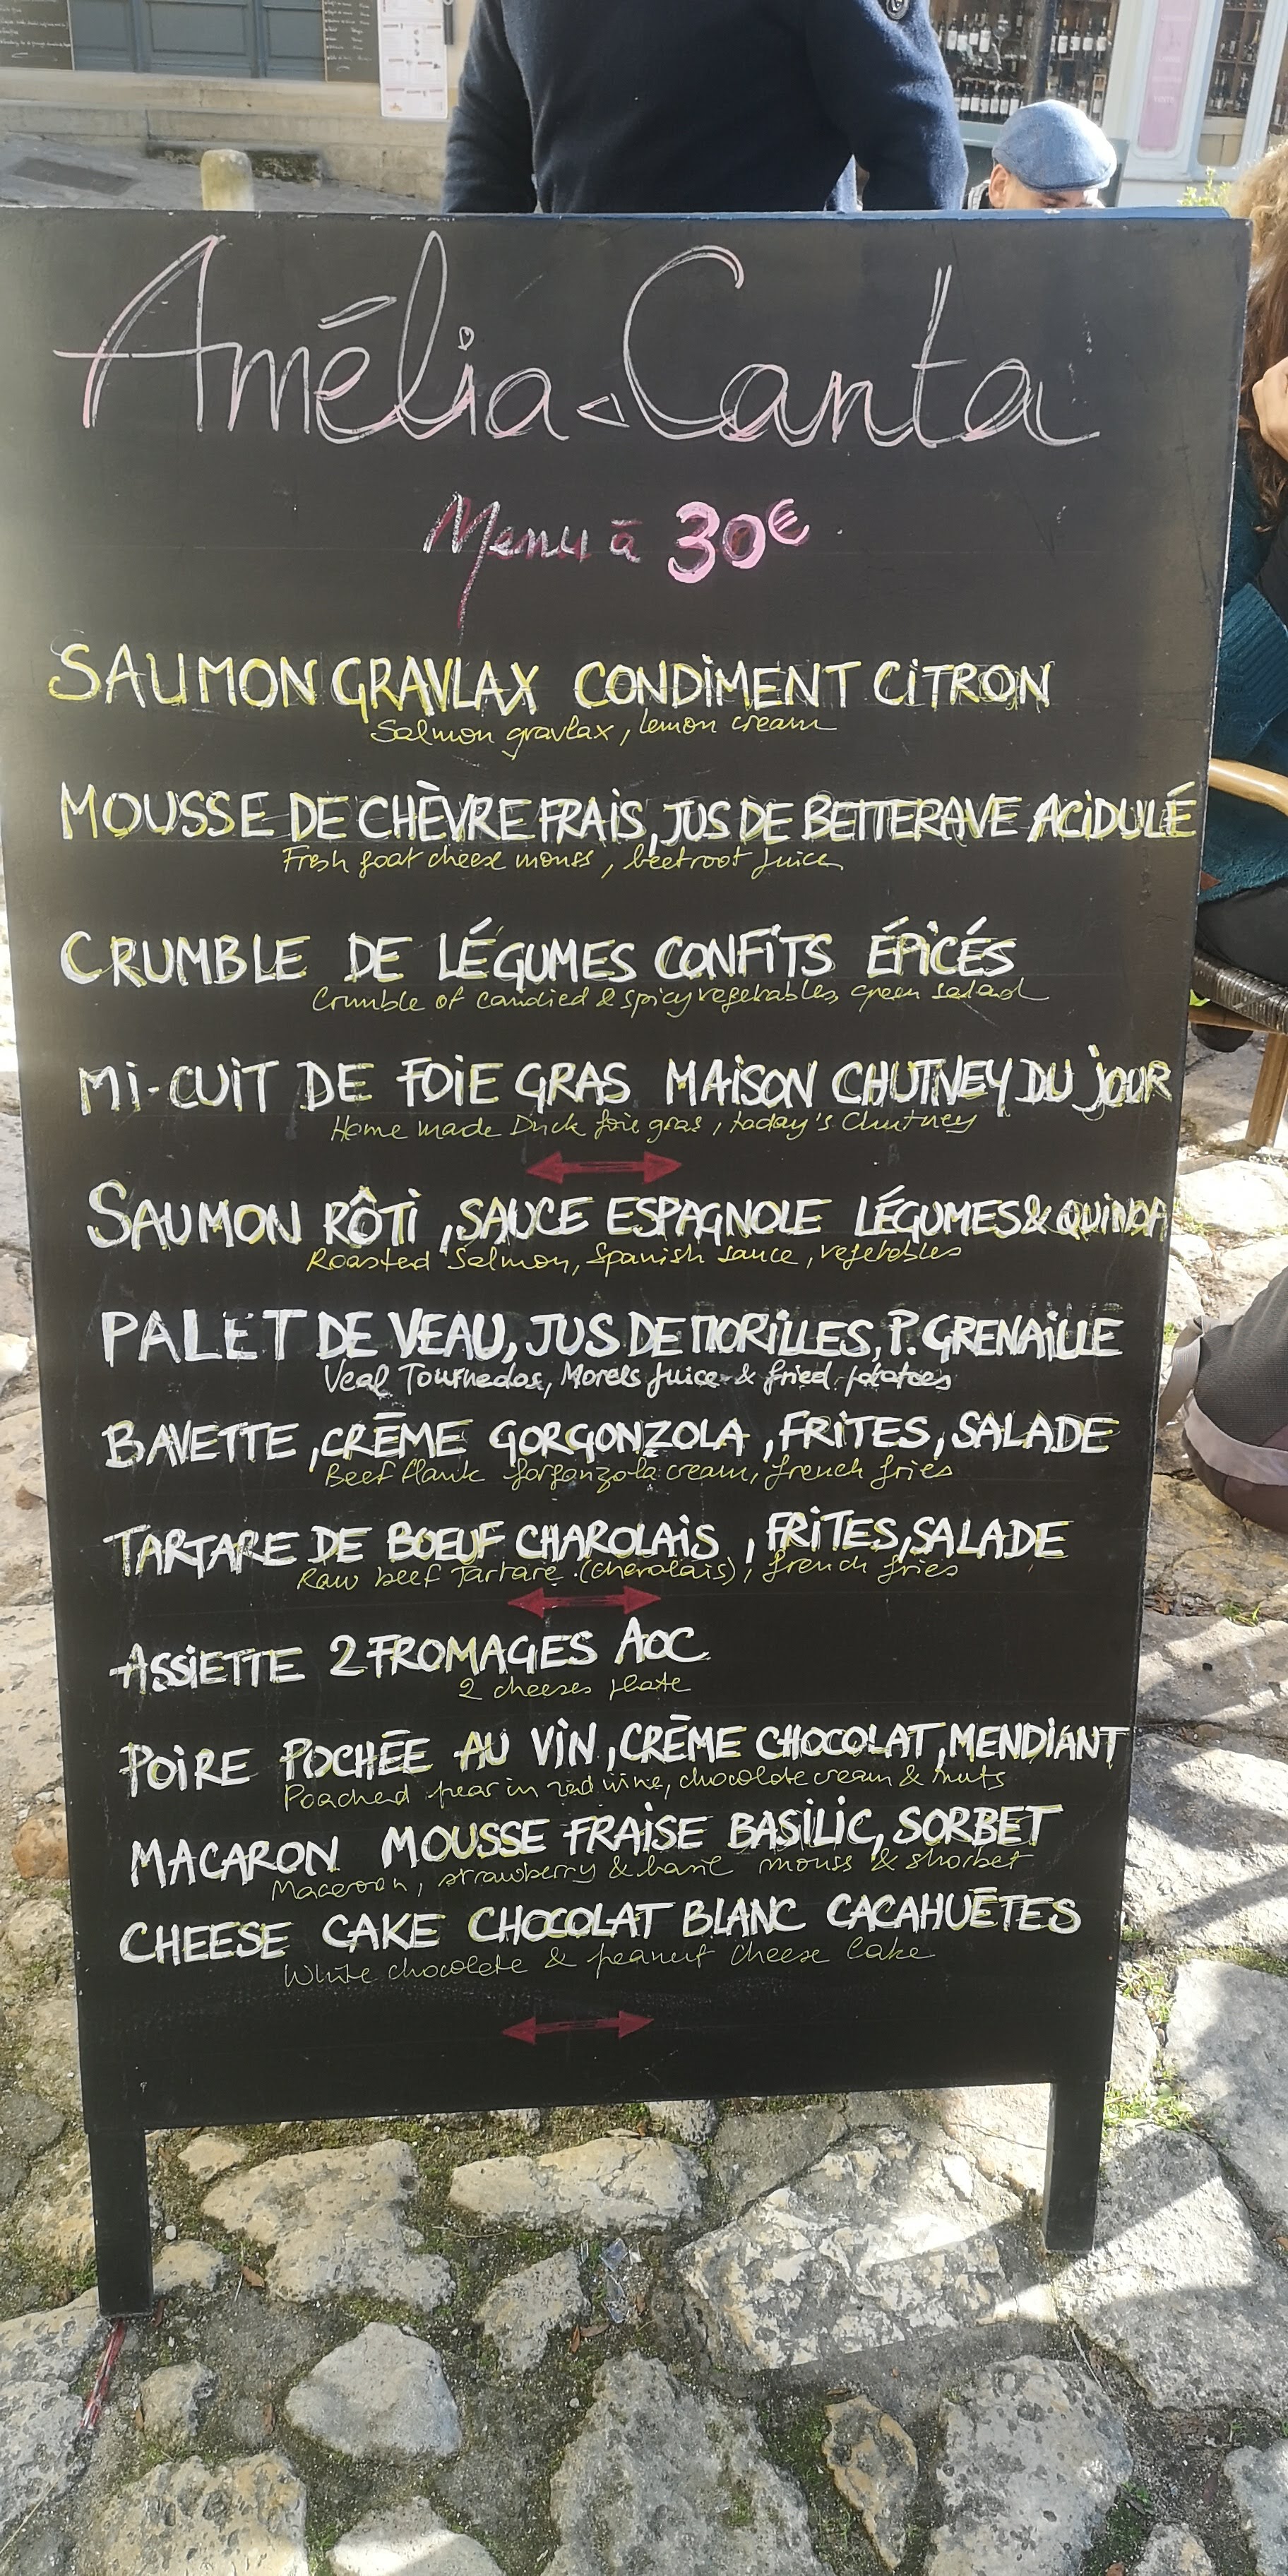 Amélia-Canta
Menu à 30€
SAUMON GRAVLAX CONDIMENT CITRON
Salmon gravlax, lemon cream
MOUSSE DE CHÈVRE FRAIS, JUS DE BETTERAVE ACIDULÉ
Fresh goat cheese mouss, beetroot juice
CRUMBLE DE LÉGUMES CONFITS ÉPICÉS
Crumble of candied & spicy vegetables, green salad
MI-CUIT DE FOIE GRAS MAISON CHUTNEY DU JOUR
Home made Duck foie gras, today's Chutney
SAUMON RÔTI, SAUCE ESPAGNOLE LÉGUMES & QUINOA
Roasted Salmon, Spanish sauce, vegetables
PALET DE VEAU, JUS DE MORILLES, P. GRENAILLE
Veal Tournedos, Morels juice & fried potatoes
BAVETTE, CRĒME GORGONZOLA, FRITES, SALADE
Beef flank gorganzola cream, french fries
TARTARE DE BOEUF CHAROLAIS, FRITES, SALADE
Raw beef Tartare (charolais), french fries
ASSIETTE 2 FROMAGES AOC
2 cheeses plate
POIRE POCHĒE AU VIN, CRĒME CHOCOLAT, MENDIANT
Poached pear in red wine, chocolate cream & nuts
MACARON MOUSSE FRAISE BASILIC, SORBET
Macaroon, strawberry & basil mouss & shorbet
CHEESE CAKE CHOCOLAT BLANC CACAHUĒTES
White chocolate & peanut cheese cake